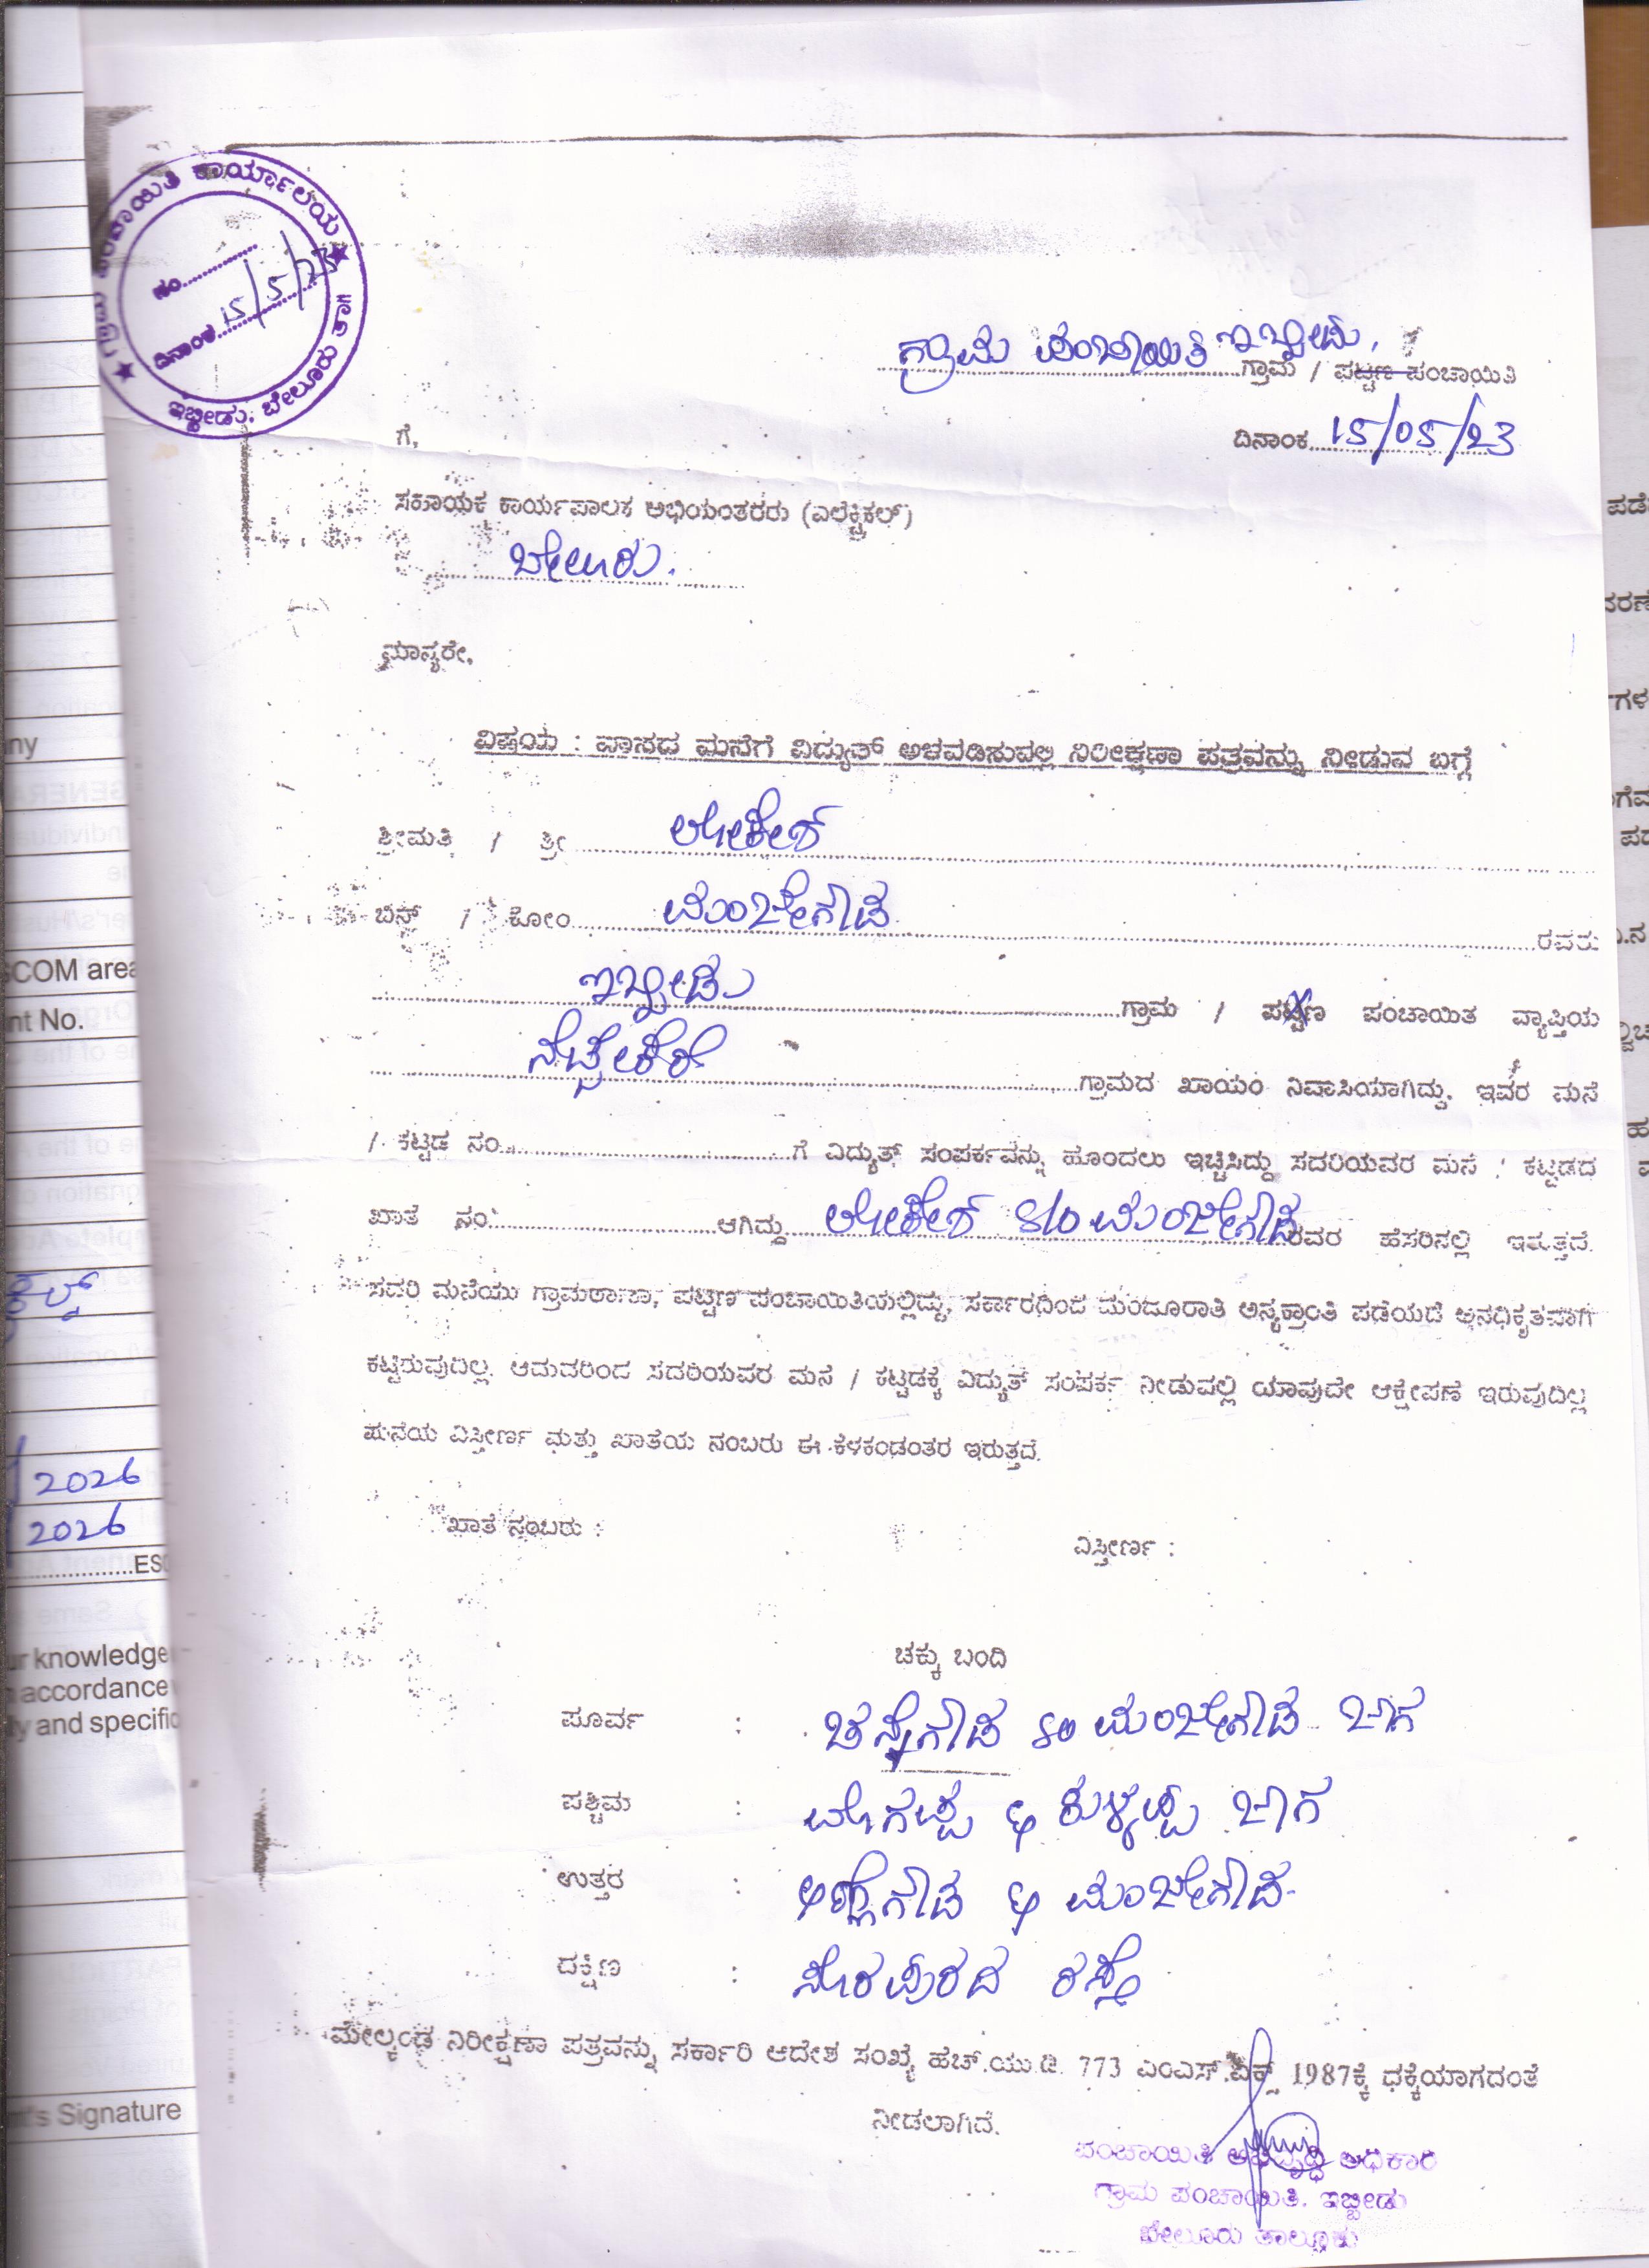 ಗ್ರಾಮ ಪಂಚಾಯಿತಿ ಕಾರ್ಯಾಲಯ
ನಂ..........
ದಿನಾಂಕ 15/5/23
ಇಬ್ಬೀಡು, ಬೇಲೂರು ತಾ||
ಗ್ರಾಮ ಪಂಚಾಯಿತಿ ಇಬ್ಬೀಡು, ಗ್ರಾಮ / ಪಟ್ಟಣ ಪಂಚಾಯಿತಿ
ದಿನಾಂಕ 15/05/23
ಗೆ,
ಸಹಾಯಕ ಕಾರ್ಯಪಾಲಕ ಅಭಿಯಂತರರು (ಎಲೆಕ್ಟ್ರಿಕಲ್)
ಬೇಲೂರು.
ಮಾನ್ಯರೇ,
ವಿಷಯ : ವಾಸದ ಮನೆಗೆ ವಿದ್ಯುತ್ ಅಳವಡಿಸುವಲ್ಲಿ ನಿರೀಕ್ಷಣಾ ಪತ್ರವನ್ನು ನೀಡುವ ಬಗ್ಗೆ
ಶ್ರೀಮತಿ / ಶ್ರೀ ಲೋಕೇಶ್
ಬಿನ್ / ಕೋಂ ಮಂಜೇಗೌಡ ರವರು
ಇಬ್ಬೀಡು ಗ್ರಾಮ / ಪಟ್ಟಣ ಪಂಚಾಯಿತ ವ್ಯಾಪ್ತಿಯ
ನೆಟ್ಟೇಕೆರೆ ಗ್ರಾಮದ ಖಾಯಂ ನಿವಾಸಿಯಾಗಿದ್ದು, ಇವರ ಮನೆ
/ ಕಟ್ಟಡ ನಂ..........ಗೆ ವಿದ್ಯುತ್ ಸಂಪರ್ಕವನ್ನು ಹೊಂದಲು ಇಚ್ಚಿಸಿದ್ದು ಸದರಿಯವರ ಮನೆ / ಕಟ್ಟಡದ
ಖಾತೆ ನಂ..........ಆಗಿದ್ದು ಲೋಕೇಶ್ S/o ಮಂಜೇಗೌಡ ರವರ ಹೆಸರಿನಲ್ಲಿ ಇರುತ್ತದೆ.
ಸದರಿ ಮನೆಯು ಗ್ರಾಮಠಾಣಾ, ಪಟ್ಟಣ ಪಂಚಾಯಿತಿಯಲ್ಲಿದ್ದು, ಸರ್ಕಾರದಿಂದ ಮಂಜೂರಾತಿ ಅನ್ಯಕ್ರಾಂತಿ ಪಡೆಯದೆ ಅನಧಿಕೃತವಾಗಿ
ಕಟ್ಟಿರುವುದಿಲ್ಲ. ಆದುದರಿಂದ ಸದರಿಯವರ ಮನೆ / ಕಟ್ಟಡಕ್ಕೆ ವಿದ್ಯುತ್ ಸಂಪರ್ಕ ನೀಡುವಲ್ಲಿ ಯಾವುದೇ ಆಕ್ಷೇಪಣೆ ಇರುವುದಿಲ್ಲ
ಮನೆಯ ವಿಸ್ತೀರ್ಣ ಮತ್ತು ಖಾತೆಯ ನಂಬರು ಈ ಕೆಳಕಂಡಂತರ ಇರುತ್ತದೆ.
ಖಾತೆ ನಂಬರು :
ವಿಸ್ತೀರ್ಣ :
ಚಕ್ಕು ಬಂದಿ
ಪೂರ್ವ : ಚನ್ನೇಗೌಡ S/o ಮಂಜೇಗೌಡ ಜಾಗ
ಪಶ್ಚಿಮ : ಜಾಗ
ಉತ್ತರ : ಮಂಜೇಗೌಡ
ದಕ್ಷಿಣ : ರಸ್ತೆ
ಮೇಲ್ಕಂಡ ನಿರೀಕ್ಷಣಾ ಪತ್ರವನ್ನು ಸರ್ಕಾರಿ ಆದೇಶ ಸಂಖ್ಯೆ ಹೆಚ್.ಯು.ಡಿ. 773 ಎಂಎಸ್.ಎಕ್ಸ್ 1987ಕ್ಕೆ ಧಕ್ಕೆಯಾಗದಂತೆ
ನೀಡಲಾಗಿದೆ.
ಪಂಚಾಯಿತಿ ಅಭಿವೃದ್ಧಿ ಅಧಿಕಾರಿ
ಗ್ರಾಮ ಪಂಚಾಯಿತಿ. ಇಬ್ಬೀಡು
ಬೇಲೂರು ತಾಲ್ಲೂಕು
COM area
nt No.
2026
2026
knowledge
accordance
y and specific
Signature